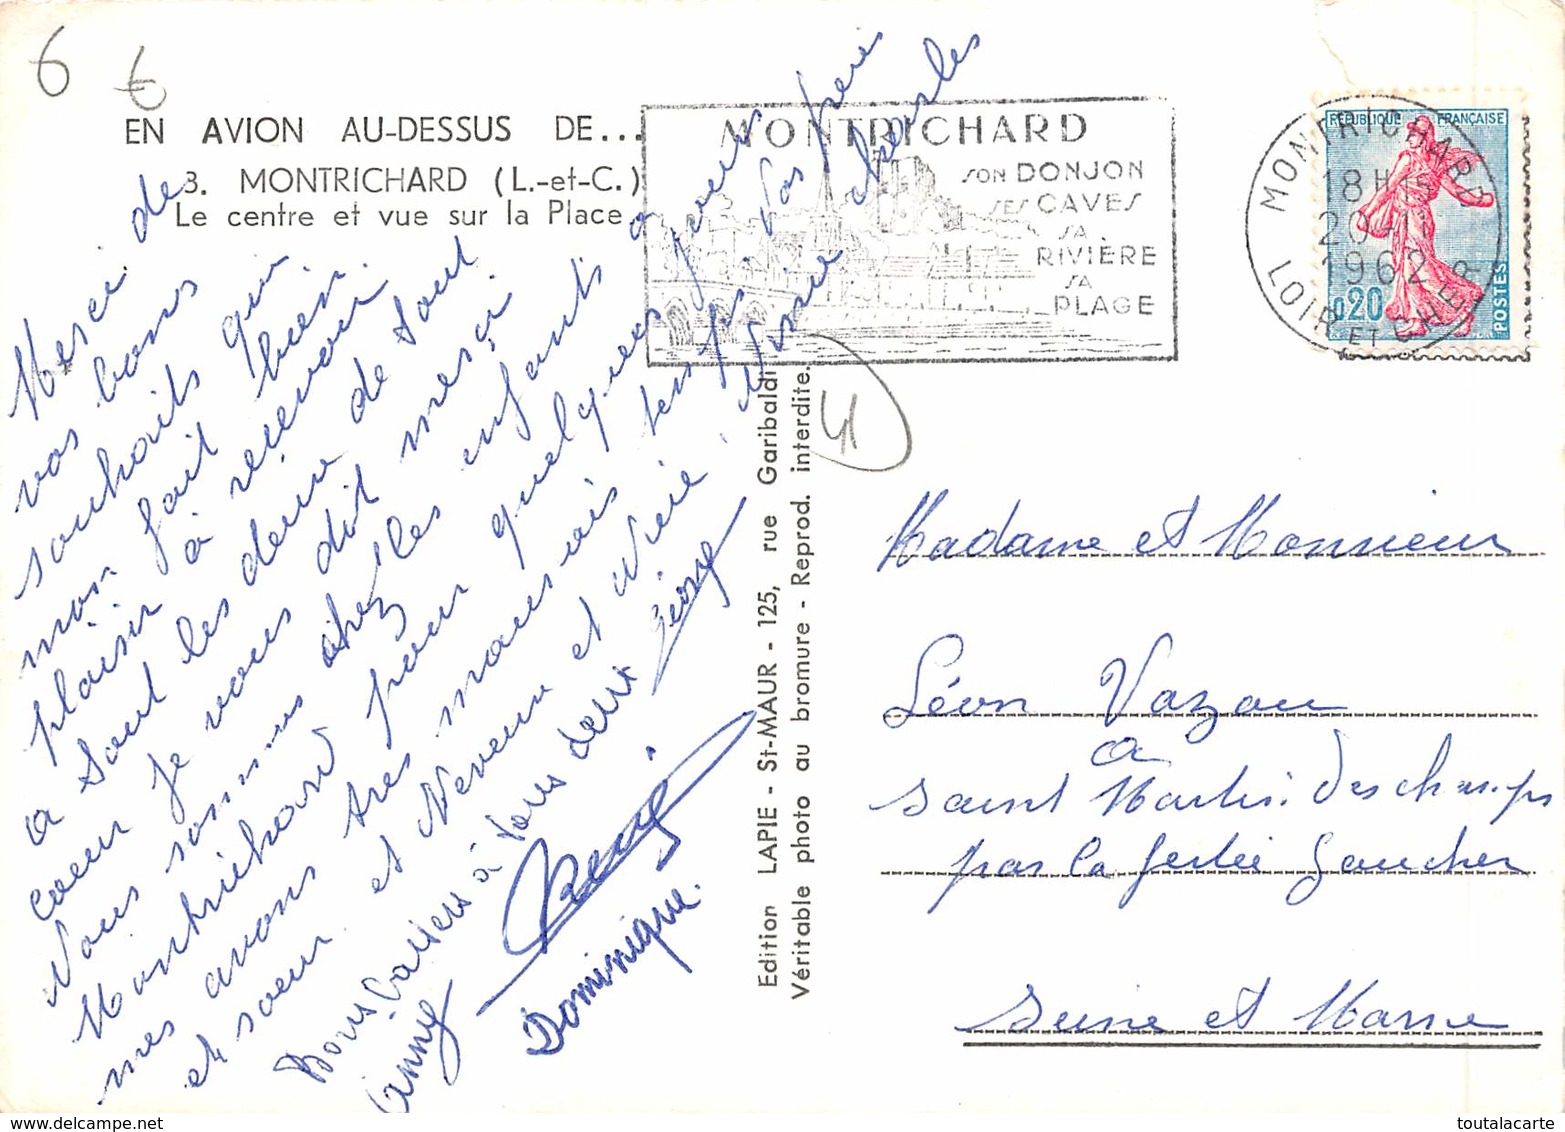 6 6
EN AVION AU-DESSUS DE...
3. MONTRICHARD (L.-et-C.)
Le centre et vue sur la Place.
MONTRICHARD
SON DONJON
SES CAVES
SA
RIVIÈRE
SA
PLAGE
MONTRICHARD
18H
20
1962
LOIR ET CHER
RÉPUBLIQUE FRANÇAISE
0,20
POSTES
41
Merci de
vos bons
souhaits qui
mon fait bien
plaisir à recevoir.
a tout les deux de tout
coeur je vous dit merci
Nous sommes chez les enfants a
Montrichard pour quelques jours
mes avons tres mauvais temps. Vos frere
et soeur et Neveux et Niece Charles
Bons baisers à tous deux George
Janny
Dominique.
Edition LAPIE - St-MAUR - 125, rue Garibaldi
Véritable photo au bromure - Reprod. interdite.
Madame et Monsieur
Léon Vazou
a
Saint Martin des champs
par la ferté Gaucher
Seine et Marne
toutalacarte.com